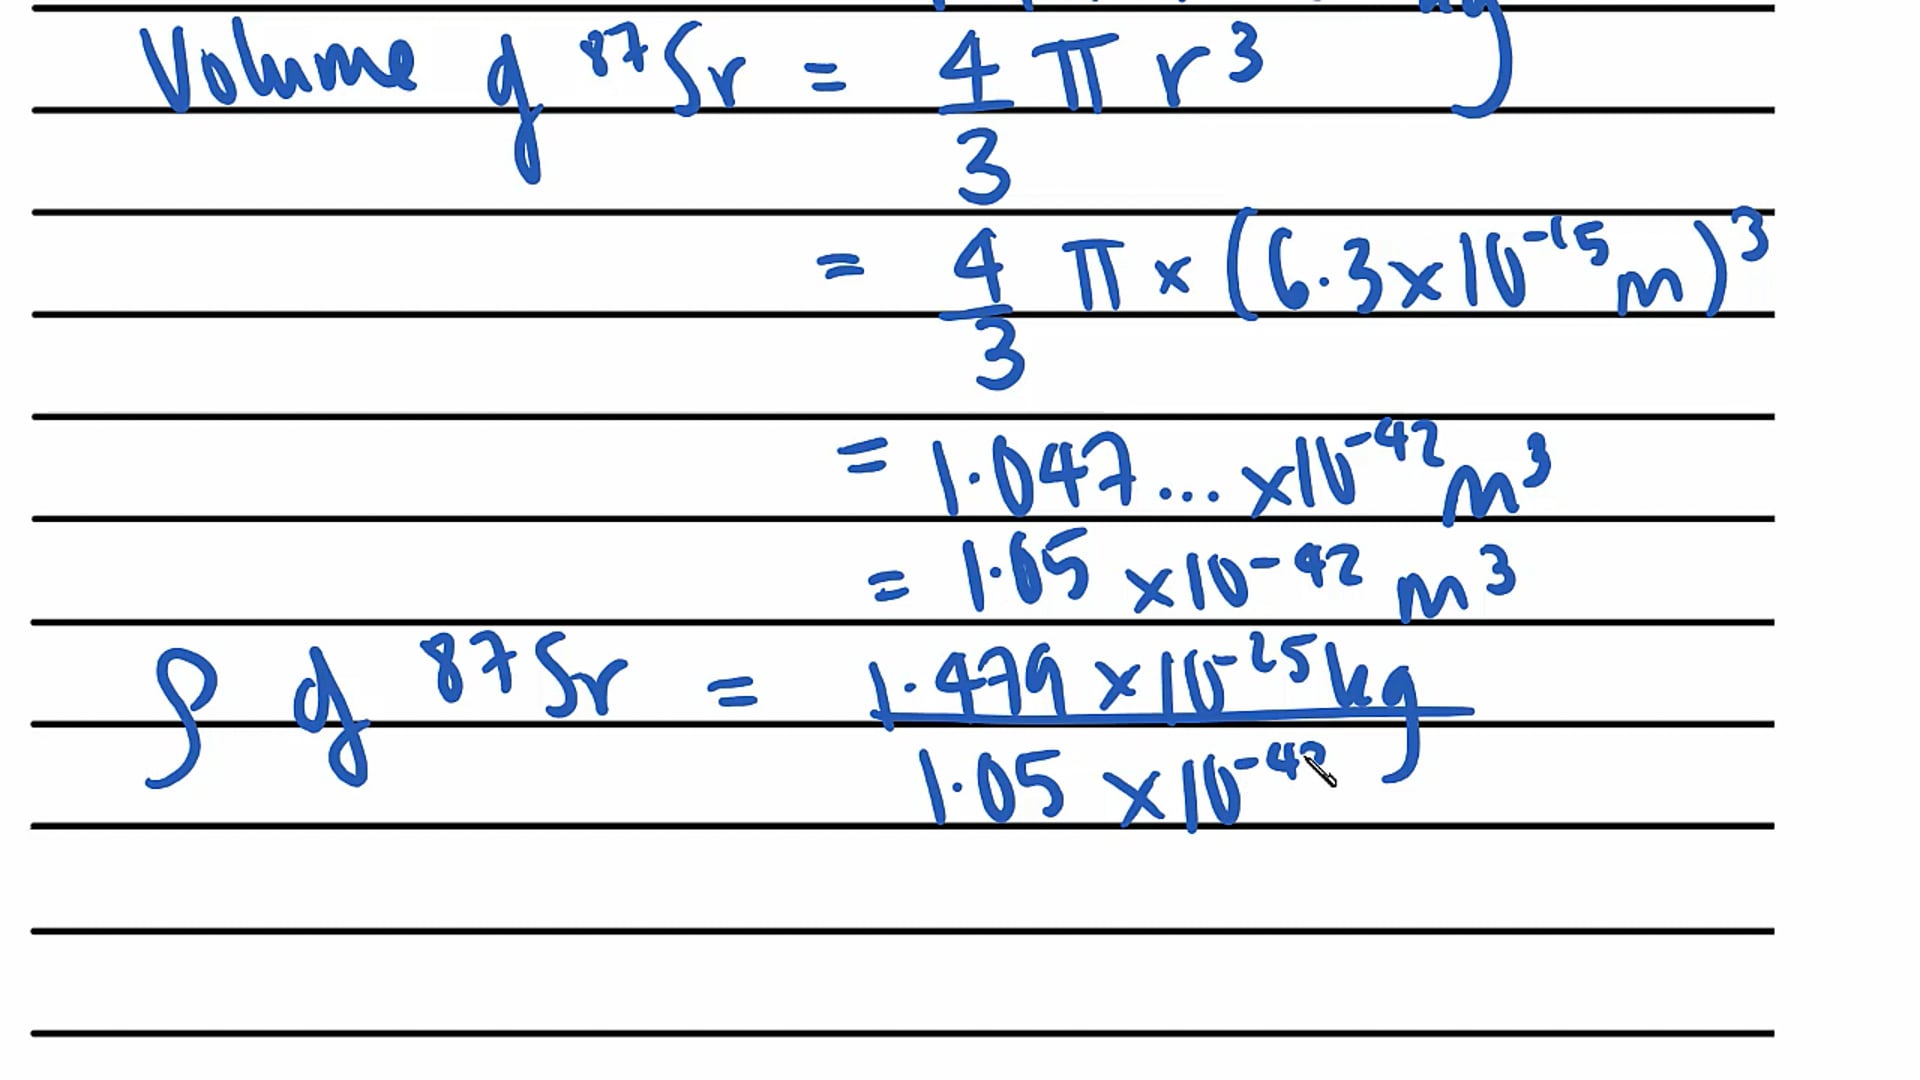 Volume of ⁸⁷Sr = 4/3 π r³
= 4/3 π × (6.3×10⁻¹⁵ m)³
= 1.047... ×10⁻⁴² m³
= 1.05 ×10⁻⁴² m³
ρ of ⁸⁷Sr = 1.479 ×10⁻²⁵ kg
1.05 ×10⁻⁴²